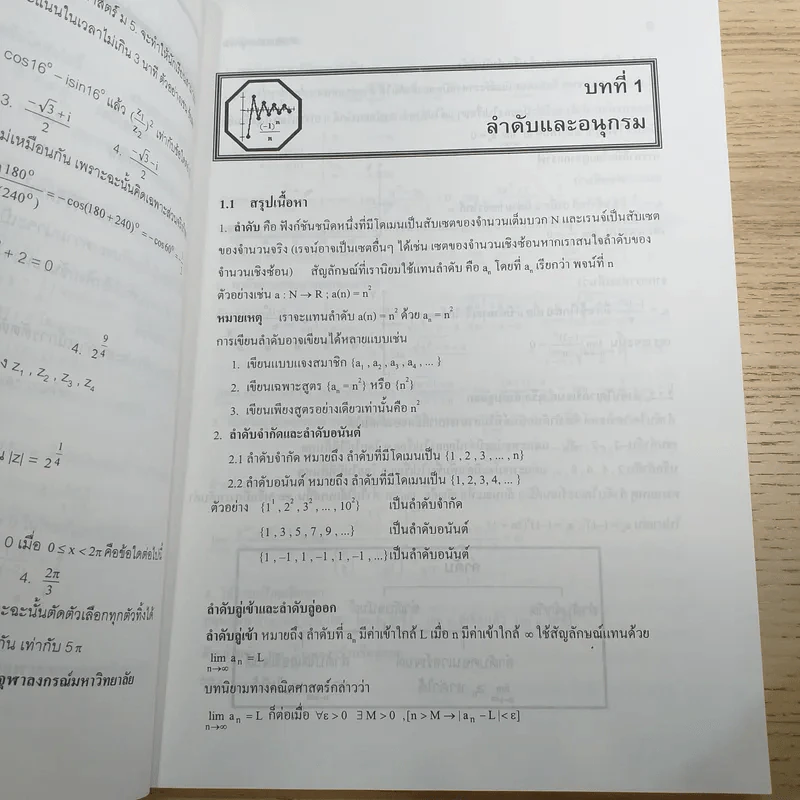 สตร์ ม 5. จะทำให้
ะแนนในเวลาไม่เกิน 3 นาที ตัวอย่าง
cos16° – isin16° แล้ว (z₁/z₂)² เท่ากับข้อใด
3. (–√3+i)/2
4. (–√3–i)/2
ไม่เหมือนกัน เพราะฉะนั้นคิดเฉพาะส่วน
180°
240°) = –cos(180+240)° = –cos60° = –1/2
+ 2 = 0
4. 2^(9/4)
ง z₁ , z₂ , z₃ , z₄
น |z| = 2^(1/4)
0 เมื่อ 0 ≤ x < 2π คือข้อใดต่อไปนี้
4. 2π/3
ะฉะนั้นตัดตัวเลือกทุกตัวทิ้งได้
กัน เท่ากับ 5π
จุฬาลงกรณ์มหาวิทยาลัย
(-1)ⁿ/n
บทที่ 1
ลำดับและอนุกรม
1.1 สรุปเนื้อหา
1. ลำดับ คือ ฟังก์ชันชนิดหนึ่งที่มีโดเมนเป็นสับเซตของจำนวนเต็มบวก N และเรนจ์เป็นสับเซต
ของจำนวนจริง (เรจน์อาจเป็นเซตอื่นๆ ได้เช่น เซตของจำนวนเชิงซ้อนหากเราสนใจลำดับของ
จำนวนเชิงซ้อน) สัญลักษณ์ที่เรานิยมใช้แทนลำดับ คือ aₙ โดยที่ aₙ เรียกว่า พจน์ที่ n
ตัวอย่างเช่น a : N → R ; a(n) = n²
หมายเหตุ เราจะแทนลำดับ a(n) = n² ด้วย aₙ = n²
การเขียนลำดับอาจเขียนได้หลายแบบเช่น
1. เขียนแบบแจงสมาชิก {a₁ , a₂ , a₃ , a₄ , ... }
2. เขียนเฉพาะสูตร {aₙ = n²} หรือ {n²}
3. เขียนเพียงสูตรอย่างเดียวเท่านั้นคือ n²
2. ลำดับจำกัดและลำดับอนันต์
2.1 ลำดับจำกัด หมายถึง ลำดับที่มีโดเมนเป็น {1 , 2 , 3 , ... , n}
2.2 ลำดับอนันต์ หมายถึง ลำดับที่มีโดเมนเป็น {1, 2, 3, 4, ... }
ตัวอย่าง {1¹ , 2² , 3² , ... , 10²} เป็นลำดับจำกัด
{1 , 3 , 5 , 7 , 9 , ...} เป็นลำดับอนันต์
{1 , –1 , 1 , –1 , 1 , –1 , ...} เป็นลำดับอนันต์
ลำดับลู่เข้าและลำดับลู่ออก
ลำดับลู่เข้า หมายถึง ลำดับที่ aₙ มีค่าเข้าใกล้ L เมื่อ n มีค่าเข้าใกล้ ∞ ใช้สัญลักษณ์แทนด้วย
lim n→∞ aₙ = L
บทนิยามทางคณิตศาสตร์กล่าวว่า
lim n→∞ aₙ = L ก็ต่อเมื่อ ∀ε > 0 ∃M > 0 ,[n > M → | aₙ – L | < ε]